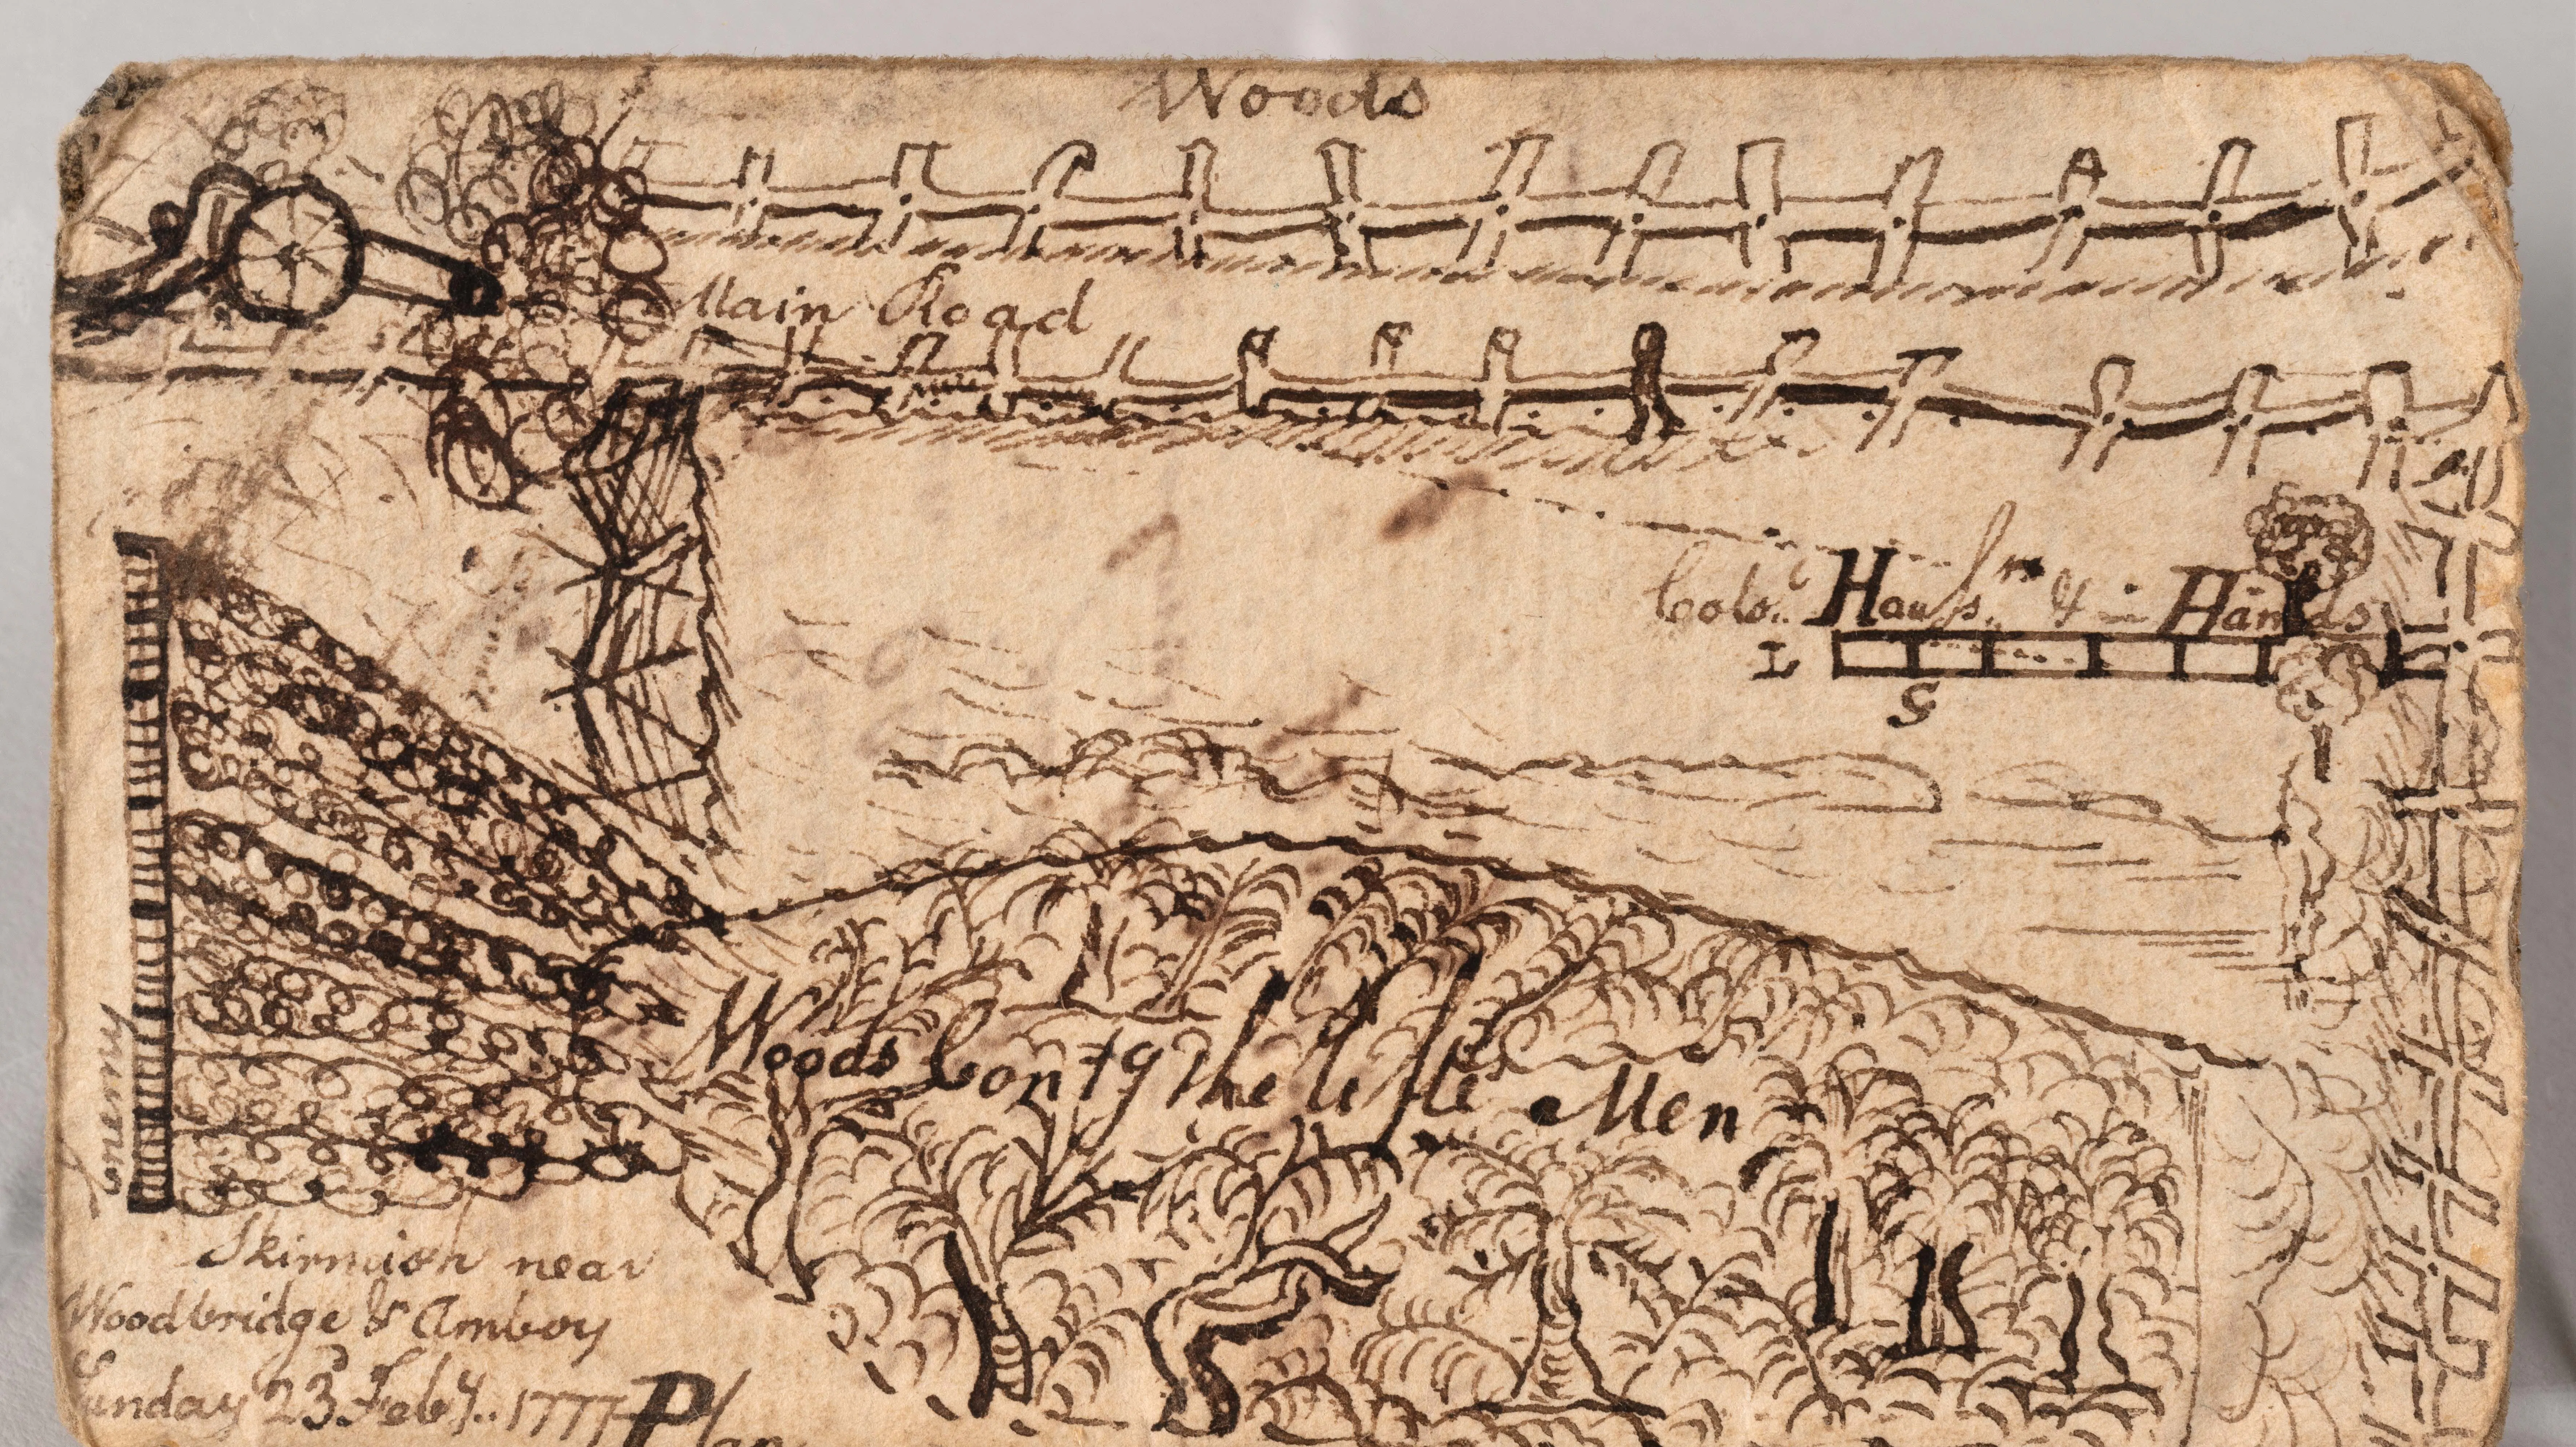 Woods
Main Road
Colo. Hauss.. 4 in Hands
L
S
Woods Contg the little Men
Enemy
Skirmish near
Woodbridge & Amboy
Sunday 23d Feby.. 1777
Plan